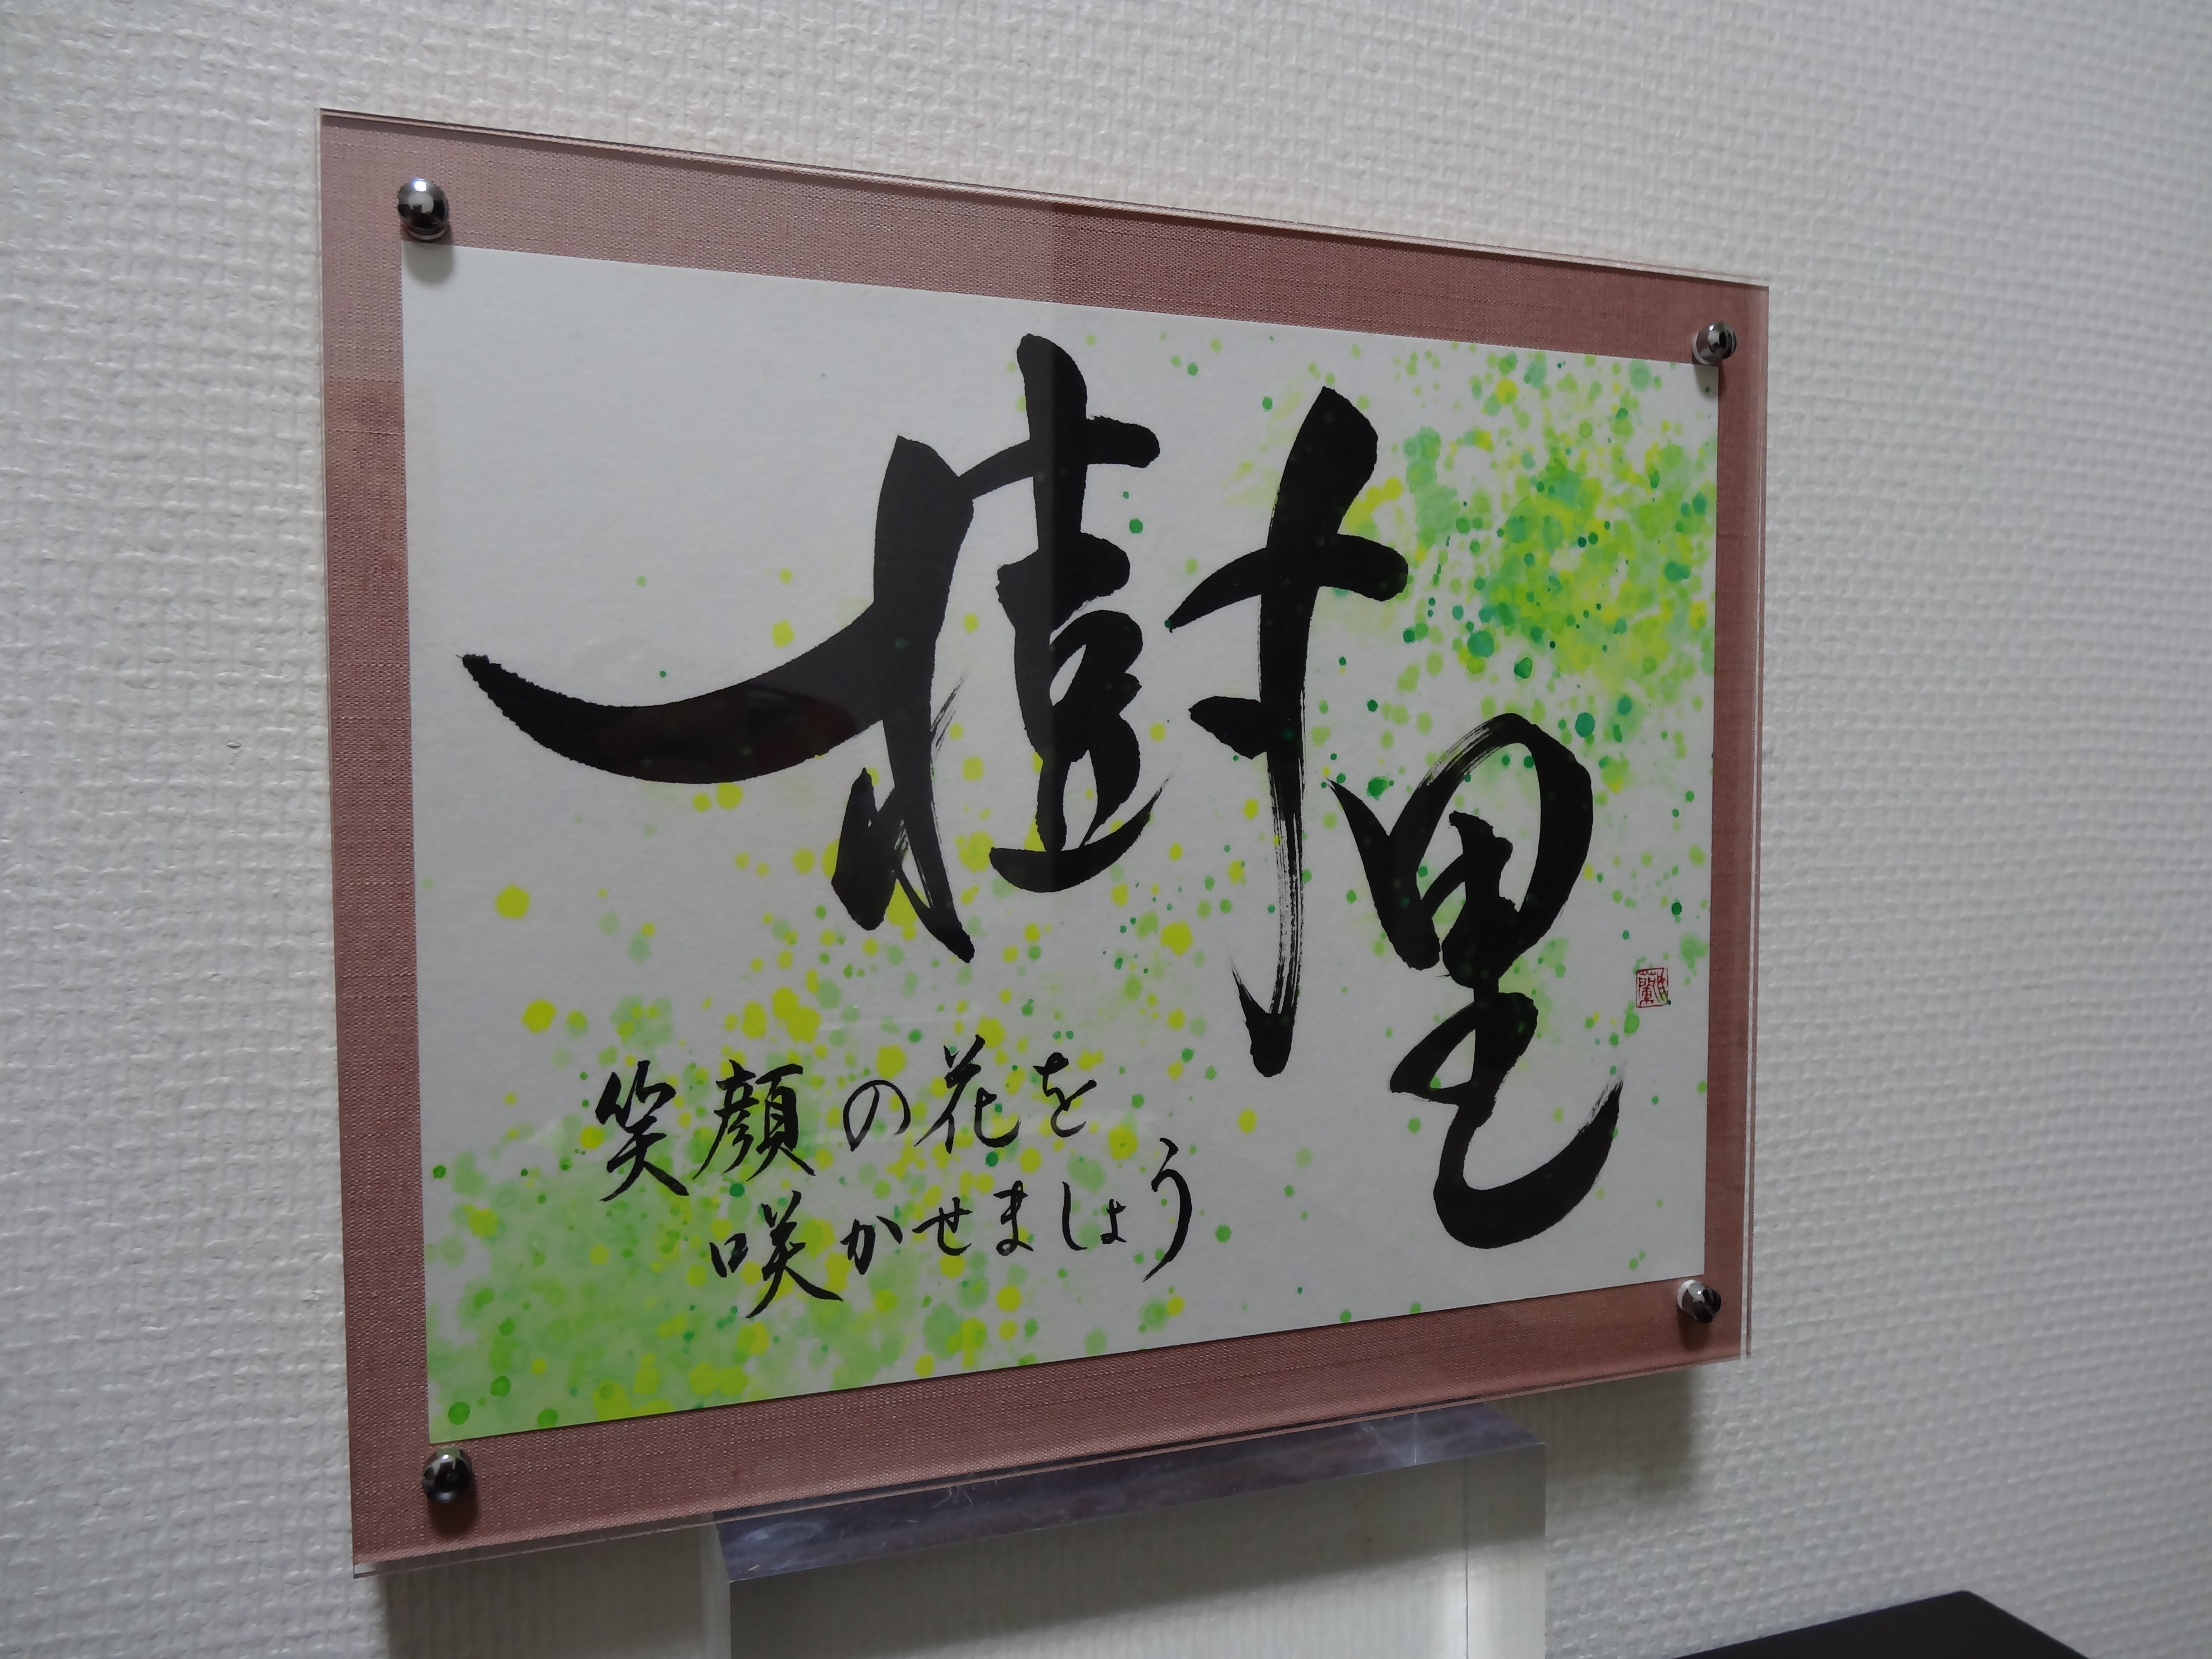 樹里
笑顔の花を
咲かせましょう